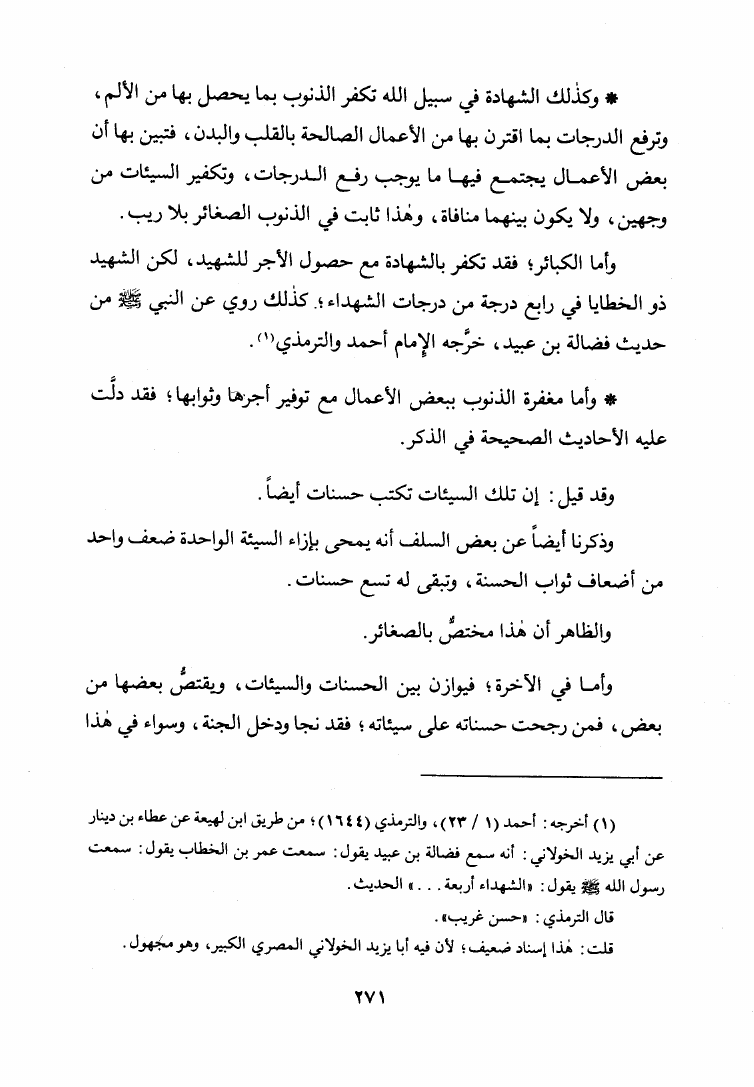 * وكذٰلك الشهادة في سبيل الله تكفر الذنوب بما يحصل بها من الألم،
وترفع الدرجات بما اقترن بها من الأعمال الصالحة بالقلب والبدن، فتبين بها أن
بعض الأعمال يجتمع فيها ما يوجب رفع الدرجات، وتكفير السيئات من
وجهين، ولا يكون بينهما منافاة، وهٰذا ثابت في الذنوب الصغائر بلا ريب.
وأما الكبائر؛ فقد تكفر بالشهادة مع حصول الأجر للشهيد، لكن الشهيد
ذو الخطايا في رابع درجة من درجات الشهداء؛ كذٰلك روي عن النبي ﷺ من
حديث فضالة بن عبيد، خرَّجه الإمام أحمد والترمذي(١).
* وأما مغفرة الذنوب ببعض الأعمال مع توفير أجرها وثوابها؛ فقد دلَّت
عليه الأحاديث الصحيحة في الذكر.
وقد قيل: إن تلك السيئات تكتب حسنات أيضاً.
وذكرنا أيضاً عن بعض السلف أنه يمحى بإزاء السيئة الواحدة ضعف واحد
من أضعاف ثواب الحسنة، وتبقى له تسع حسنات.
والظاهر أن هٰذا مختصٌّ بالصغائر.
وأما في الآخرة؛ فيوازن بين الحسنات والسيئات، ويقتصُّ بعضها من
بعض، فمن رجحت حسناته على سيئاته؛ فقد نجا ودخل الجنة، وسواء في هٰذا
(١) أخرجه: أحمد (١ / ٢٣)، والترمذي (١٦٤٤)؛ من طريق ابن لهيعة عن عطاء بن دينار
عن أبي يزيد الخولاني: أنه سمع فضالة بن عبيد يقول: سمعت عمر بن الخطاب يقول: سمعت
رسول الله ﷺ يقول: «الشهداء أربعة...» الحديث.
قال الترمذي: «حسن غريب».
قلت: هٰذا إسناد ضعيف؛ لأن فيه أبا يزيد الخولاني المصري الكبير، وهو مجهول.
٢٧١